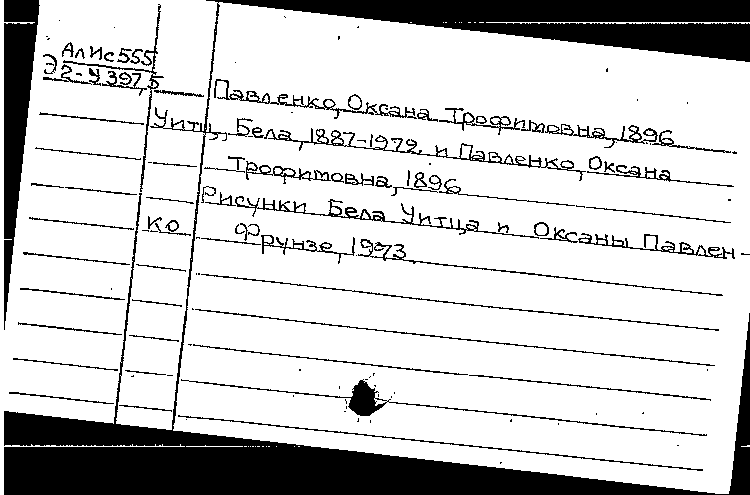 АлИс555
Э2-У397,5
Павленко, Оксана Трофимовна, 1896
Уитц, Бела, 1887-1972. и Павленко, Оксана
Трофимовна, 1896
Рисунки Бела Уитца и Оксаны Павлен-
ко
Фрунзе, 1973.